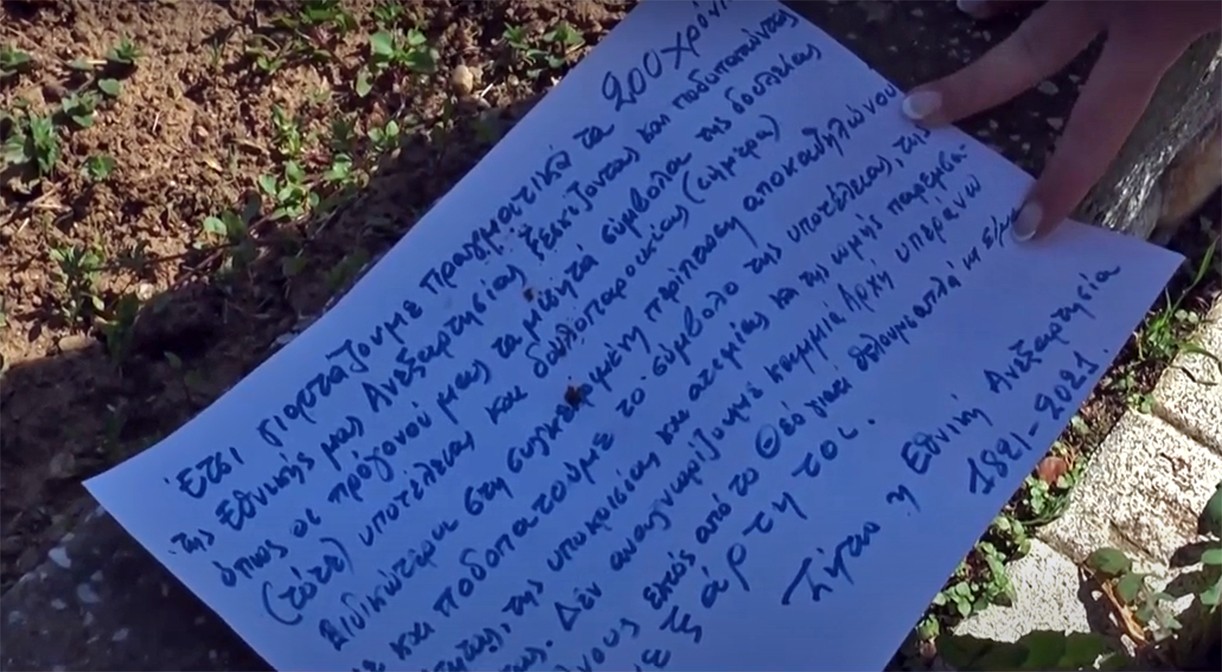 Έτσι γιορτάζουμε πραγματικά τα 200 χρόνι
της Εθνικής μας Ανεξαρτησίας ξεσκίζοντας και ποδοπατώντας
όπως οι πρόγονοί μας τα μισητά σύμβολα της δουλείας
(τότε) υποτέλειας και δουλοπαροικίας (σήμερα)
Ειδικώτερα στη συγκεκριμένη περίπτωση αποκαθηλώνου
ε και ποδοπατούμε το σύμβολο της υποτέλειας, της
της υποκρισίας και ατιμίας και της ωμής παρέμβα-
Δεν αναγνωρίζουμε καμμιά Αρχή υπεράνω
εκτός από το Θεό γιατί θέλουμε απλά να είμα
ξάρτητοι.
Ζήτω η Εθνική Ανεξαρτησία
1821-2021.